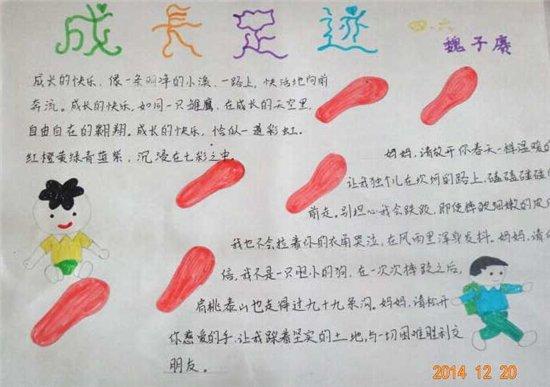 成长足迹
四.六
魏子赓
成长的快乐,像一条叫淙的小溪,一路上,快活地向前
奔流。成长的快乐,如同一只雄鹰,在成长的天空里,
自由自在的翱翔。成长的快乐,恰似一道彩虹。
红橙黄绿青蓝紫,沉浸在七彩之中。
妈妈,请放开你春天一样温暖的
让我独个儿在坎坷的路上,磕磕碰碰
前走,别担心我会跌跤,即使摔疼细嫩的皮
我也不会拉着你的衣角哭泣,在风雨里浑身发抖。妈妈,请
信,我不是一只胆小的狗,在一次次摔跤之后,
肩挑泰山也走得过九十九条沟。妈妈,请松开
你慈爱的手,让我踩着坚实的土地,与一切困难胜利交
朋友。
2014 12 20